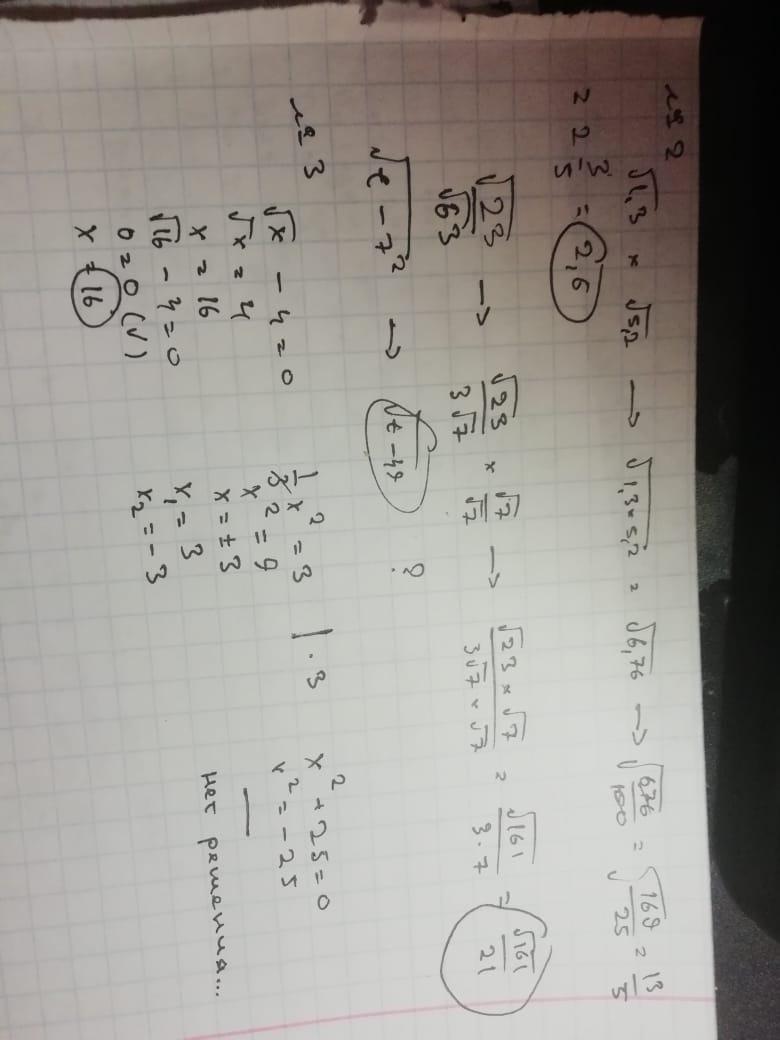 № 2
√1,3 × √5,2 → √1,3×5,2 = √6,76 → √676/100 = √169/25 = 13/5
= 2 3/5 = 2,6
√23/√63 → √23/3√7 × √7/√7 → √23 × √7/3√7 × √7 = √161/3·7 = √161/21
√t - 7² → √t - 49 ?
№ 3
√x - 4 = 0
√x = 4
x = 16
√16 - 4 = 0
0 = 0 (√)
x = 16
1/3 x² = 3 | · 3
x² = 9
x = ±3
x₁ = 3
x₂ = -3
x² + 25 = 0
x² = -25
—
нет решения...